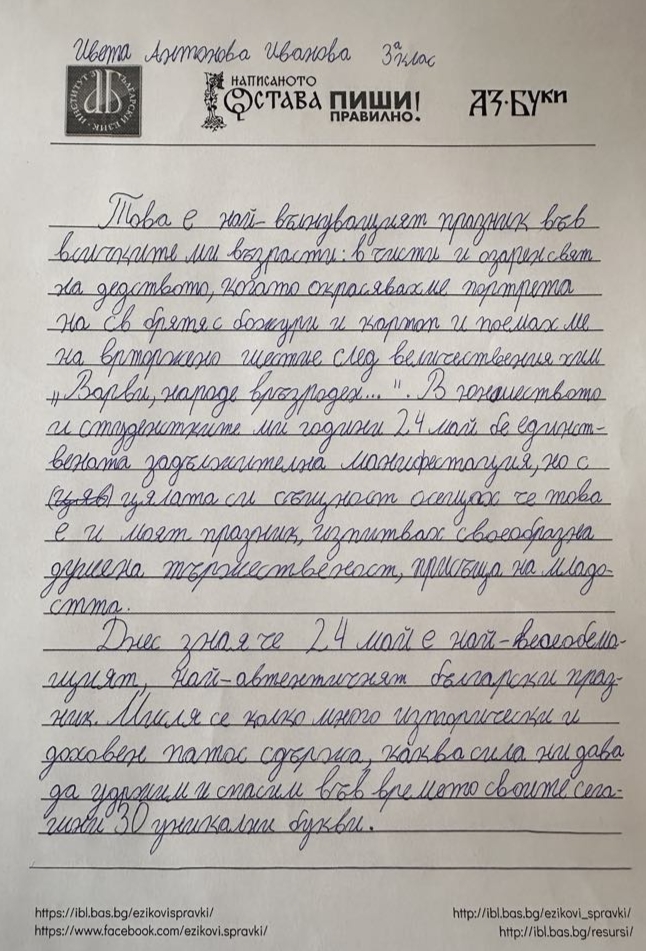 Цвета Антонова Иванова 3а клас
ИНСТИТУТ ЗА БЪЛГАРСКИ ЕЗИК
НАПИСАНОТО ОСТАВА ПИШИ ПРАВИЛНО!
АЗ·БУКИ
Това е най-вълнуващият празник във
всичките ми възрасти: в чисти и озарен свят
на дедството, когато окрасявахме портрета
на св братя с божури и картоп и поемахме
на врторжено шествие след величествения хим
„Ворви, народе връзродех...". В юношеството
и студенстките ми години 24 май бе единст-
вената задължителна манифестация, но с
цялата си същност осещах че това
е и моят празник, изпитвах своеобразна
душена тържественост, присъща на младо-
стта.
Днес зная че 24 май е най-
щият, най-автентичнят български праз-
ник. Мисля се колко много изторически и
доховен патос сдържа, каква сила ни дава
да удржим и спасим във времето своите сега-
шни 30 уникални букви.
https://ibl.bas.bg/ezikovispravki/ http://ibl.bas.bg/ezikovi_spravki/
https://www.facebook.com/ezikovi.spravki/ http://ibl.bas.bg/resursi/